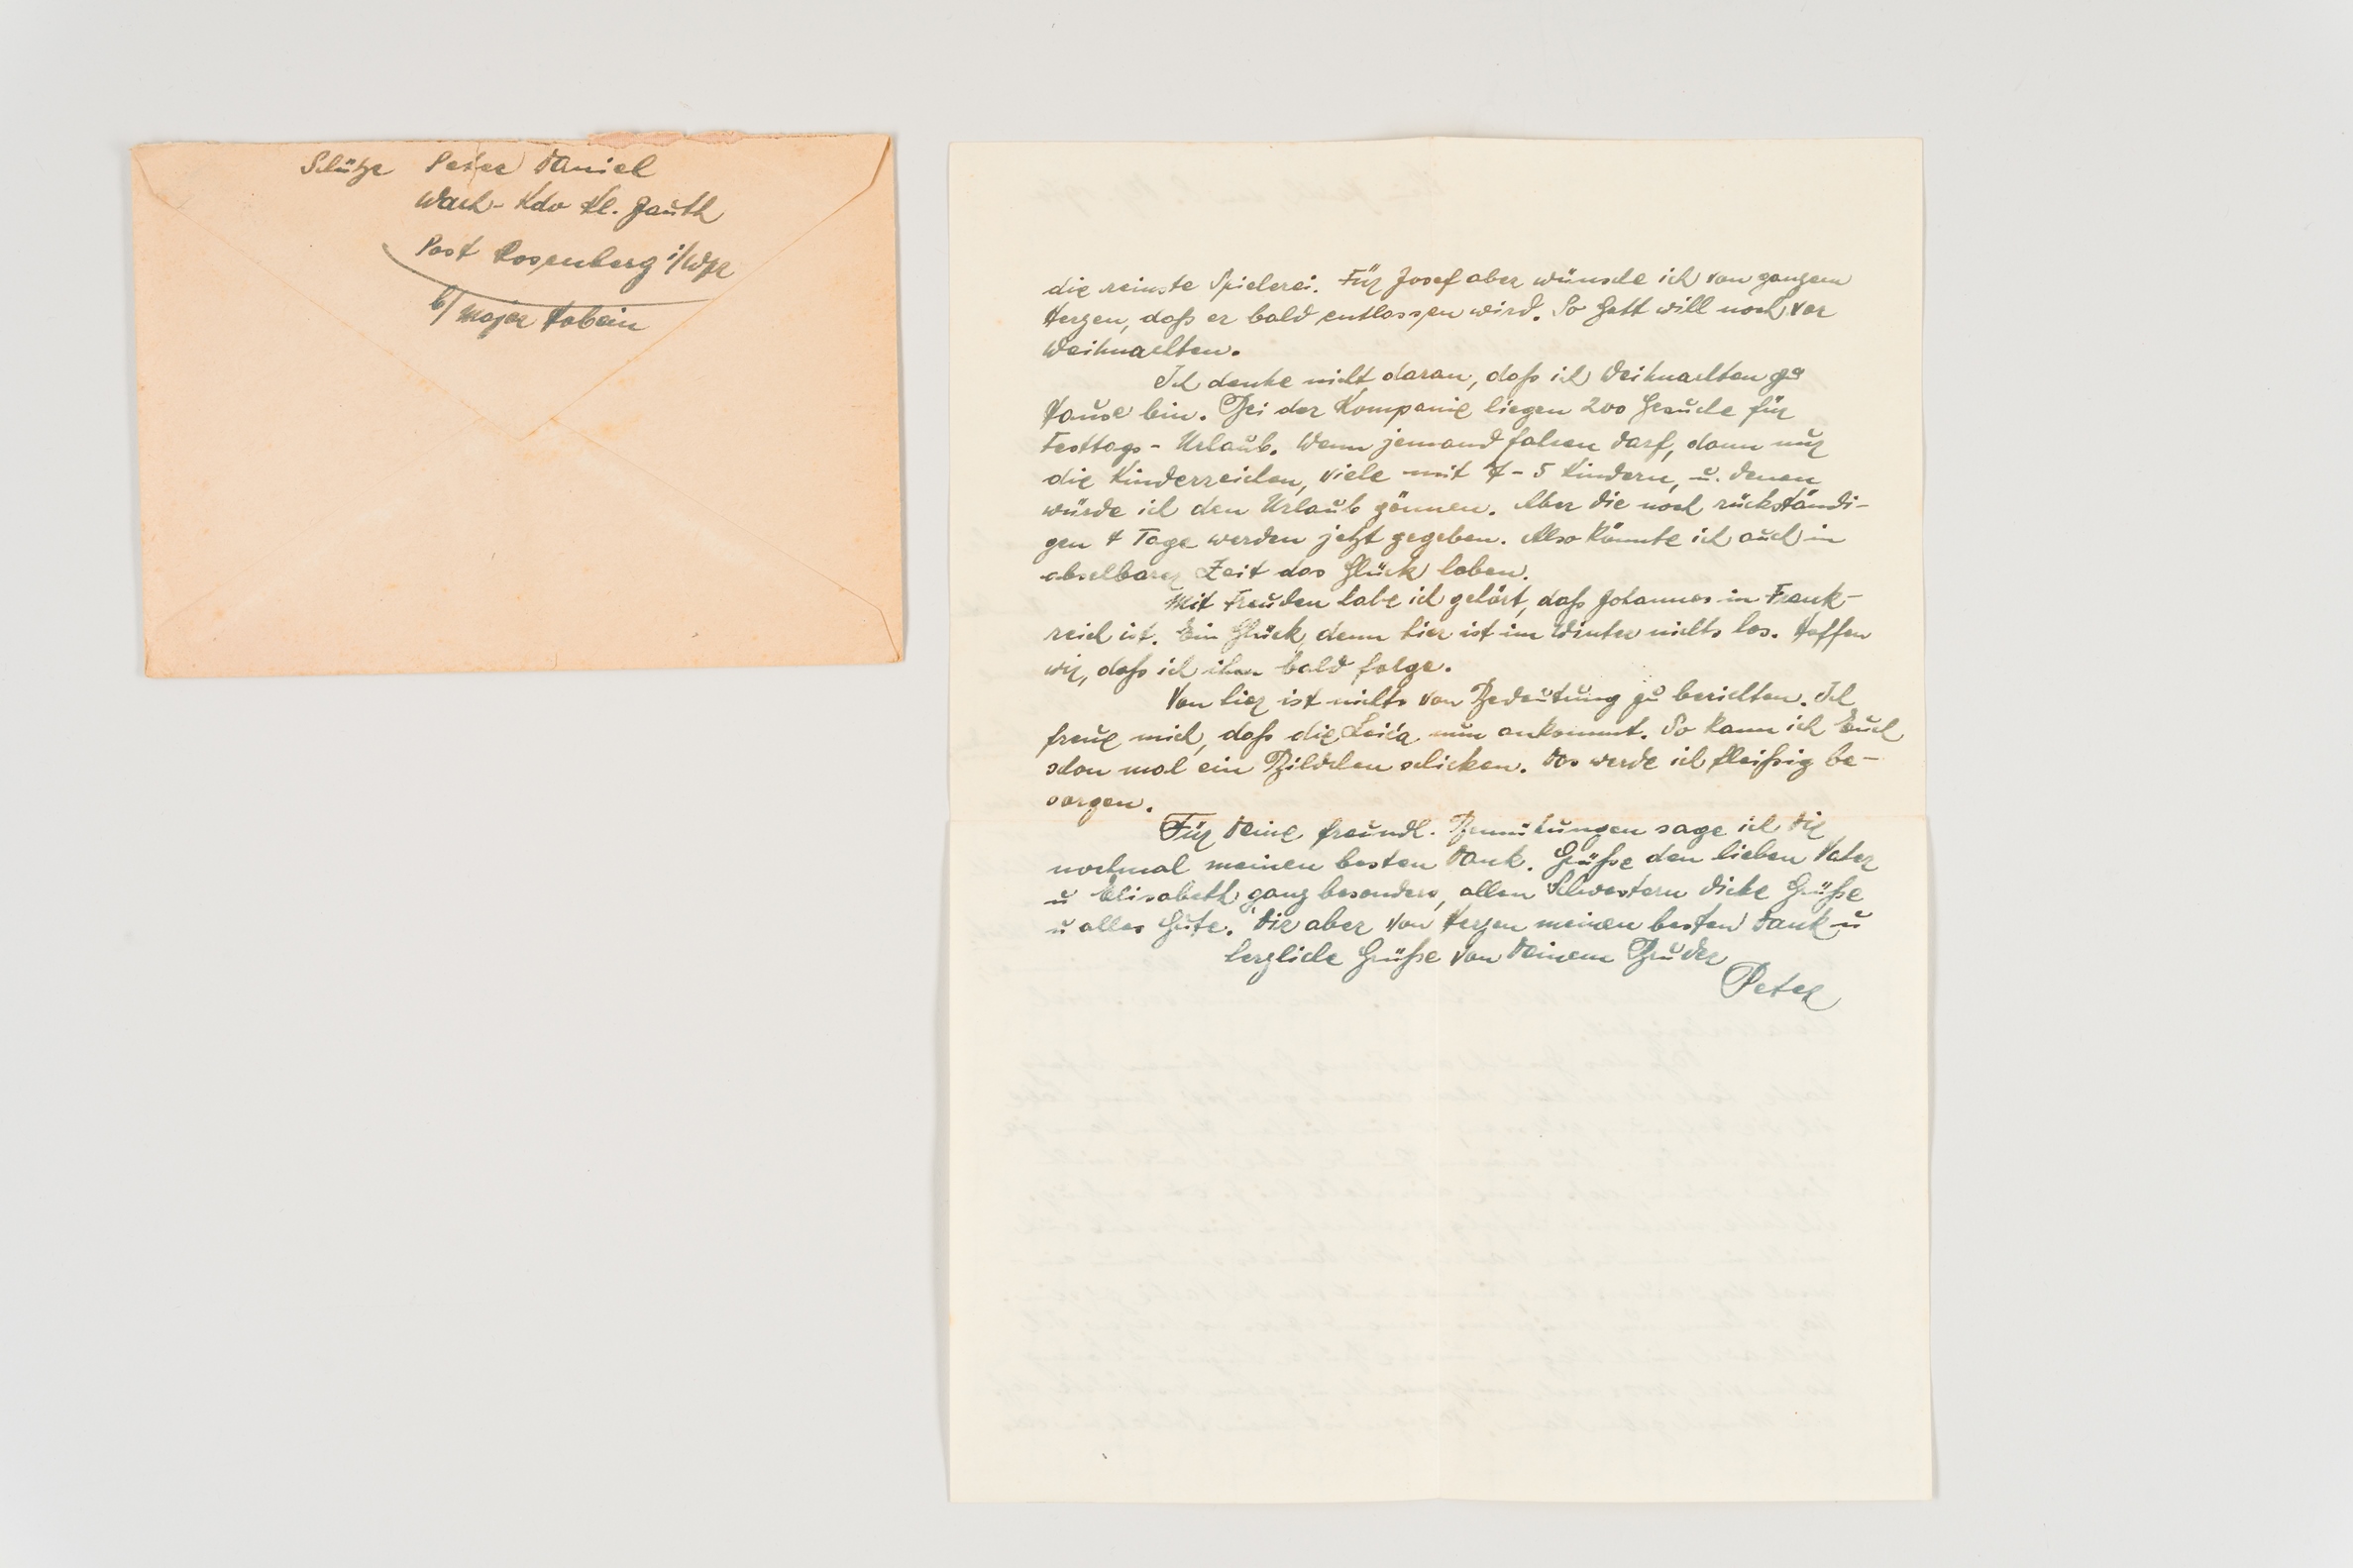 Schütze Peter Daniel
Wach-Kdo Kl. Jauth
Post Rosenberg i/Wpr
b/ Major Habein
die reinste Spielerei. Für Josef aber wünsche ich von ganzem
Herzen, daß er bald entlassen wird. So Gott will noch vor
Weihnachten.
Ich denke nicht daran, daß ich Weihnachten zu
Hause bin. Bei der Kompanie liegen 200 Gesuche für
Festtags-Urlaub. Wenn jemand fahren darf, dann nur
die Kinderreichen, viele mit 4-5 Kindern, u. denen
würde ich den Urlaub gönnen. Aber die noch rückständi-
gen 4 Tage werden jetzt gegeben. Also könnte ich auch in
absehbarer Zeit das Glück haben.
Mit Freuden habe ich gehört, daß Johannes in Frank-
reich ist. Ein Glück, denn hier ist im Winter nichts los. Hoffen
wir, daß ich ihm bald folge.
Von hier ist nichts von Bedeutung zu berichten. Ich
freue mich, daß die Leica nun ankommt. So kann ich Euch
schon mal ein Bildchen schicken. Das werde ich fleißig be-
sorgen.
Für Deine freundl. Bemühungen sage ich Dir
nochmal meinen besten Dank. Grüße den lieben Vater
u Elisabeth ganz besonders, allen Schwestern dicke Grüße
u alles Gute. Dir aber von Herzen meinen besten Dank u
herzliche Grüße von Deinem Bruder
Peter